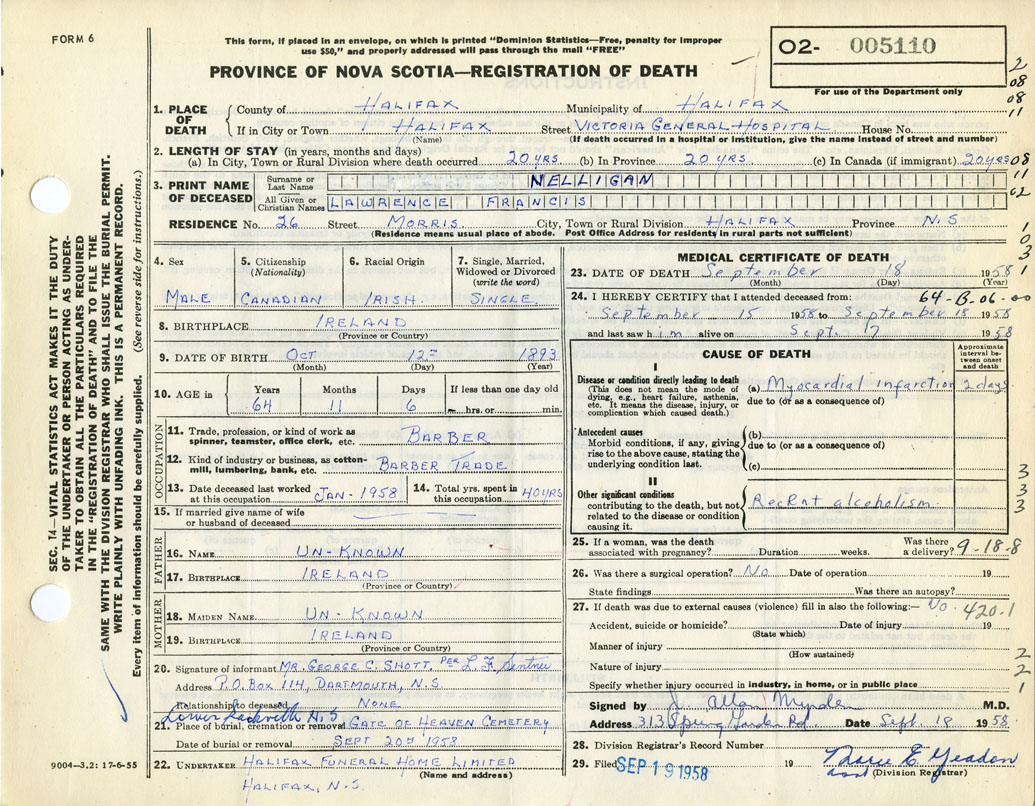 FORM 6
This form, if placed in an envelope, on which is printed "Dominion Statistics—Free, penalty for improper
use $50," and properly addressed will pass through the mail "FREE"
PROVINCE OF NOVA SCOTIA—REGISTRATION OF DEATH
02- 005110
For use of the Department only
2
08
08
11
SEC. 14—VITAL STATISTICS ACT MAKES IT THE DUTY
OF THE UNDERTAKER OR PERSON ACTING AS UNDER-
TAKER TO OBTAIN ALL THE PARTICULARS REQUIRED
IN THE "REGISTRATION OF DEATH" AND TO FILE THE
SAME WITH THE DIVISION REGISTRAR WHO SHALL ISSUE THE BURIAL PERMIT.
WRITE PLAINLY WITH UNFADING INK. THIS IS A PERMANENT RECORD.
Every item of information should be carefully supplied. (See reverse side for instructions.)
1. PLACE OF DEATH County of HALIFAX Municipality of HALIFAX
If in City or Town HALIFAX Street VICTORIA GENERAL HOSPITAL House No.
(Name) (If death occurred in a hospital or institution, give the name instead of street and number)
2. LENGTH OF STAY (in years, months and days)
(a) In City, Town or Rural Division where death occurred 20 YRS. (b) In Province 20 YRS. (c) In Canada (if immigrant) 20 YRS 08
11
3. PRINT NAME OF DECEASED Surname or Last Name NELLIGAN
All Given or Christian Names LAWRENCE FRANCIS
62
RESIDENCE No. 26 Street MORRIS City, Town or Rural Division HALIFAX Province N.S
(Residence means usual place of abode. Post Office Address for residents in rural parts not sufficient)
1
0
3
1
4. Sex 5. Citizenship (Nationality) 6. Racial Origin 7. Single, Married, Widowed or Divorced (write the word)
MALE CANADIAN IRISH SINGLE
8. BIRTHPLACE IRELAND
(Province or Country)
9. DATE OF BIRTH OCT 12 1893
(Month) (Day) (Year)
10. AGE in Years Months Days If less than one day old
64 11 6 hrs. or min.
OCCUPATION
11. Trade, profession, or kind of work as spinner, teamster, office clerk, etc. BARBER
12. Kind of industry or business, as cotton-mill, lumbering, bank, etc. BARBER TRADE
13. Date deceased last worked at this occupation JAN-1958 14. Total yrs. spent in this occupation 40 YRS
15. If married give name of wife or husband of deceased
FATHER
16. NAME UN-KNOWN
17. BIRTHPLACE IRELAND
(Province or Country)
MOTHER
18. MAIDEN NAME UN-KNOWN
19. BIRTHPLACE IRELAND
(Province or Country)
20. Signature of informant MR. GEORGE C. SHOTT. PER L.F.
Address P.O. BOX 114, DARTMOUTH, N.S.
Relationship to deceased NONE
Lower Sackville N.S
21. Place of burial, cremation or removal GATE OF HEAVEN CEMETERY
Date of burial or removal SEPT 20 1958
22. UNDERTAKER HALIFAX FUNERAL HOME LIMITED
(Name and address)
HALIFAX, N.S.
9004—3,2: 17-6-55
MEDICAL CERTIFICATE OF DEATH
23. DATE OF DEATH September 18 1958
(Month) (Day) (Year)
24. I HEREBY CERTIFY that I attended deceased from: 64-B-06-00
September 15 1958 to September 18 1958
and last saw him alive on Sept. 17 1958
CAUSE OF DEATH
Approximate interval between onset and death
I
Disease or condition directly leading to death
(This does not mean the mode of dying, e.g., heart failure, asthenia, etc. It means the disease, injury, or complication which caused death.)
(a) Myocardial infarction 2 days
due to (or as a consequence of)
Antecedent causes
Morbid conditions, if any, giving rise to the above cause, stating the underlying condition last.
(b)
due to (or as a consequence of)
(c)
II
Other significant conditions
contributing to the death, but not related to the disease or condition causing it.
Recent alcoholism
3
3
3
3
25. If a woman, was the death associated with pregnancy? Duration weeks. Was there a delivery? 9-18-8
26. Was there a surgical operation? No Date of operation 19
State findings Was there an autopsy?
27. If death was due to external causes (violence) fill in also the following:— No. 420.1
Accident, suicide or homicide? Date of injury 19
(State which)
Manner of injury
(How sustained)
Nature of injury
2
2
1
Specify whether injury occurred in industry, in home, or in public place
Signed by J. Allan M.D.
Address 313 Spring Garden Rd. Date Sept. 18 1958.
28. Division Registrar's Record Number
29. Filed SEP 19 1958 19 Marie E. Yeadon
(Division Registrar)